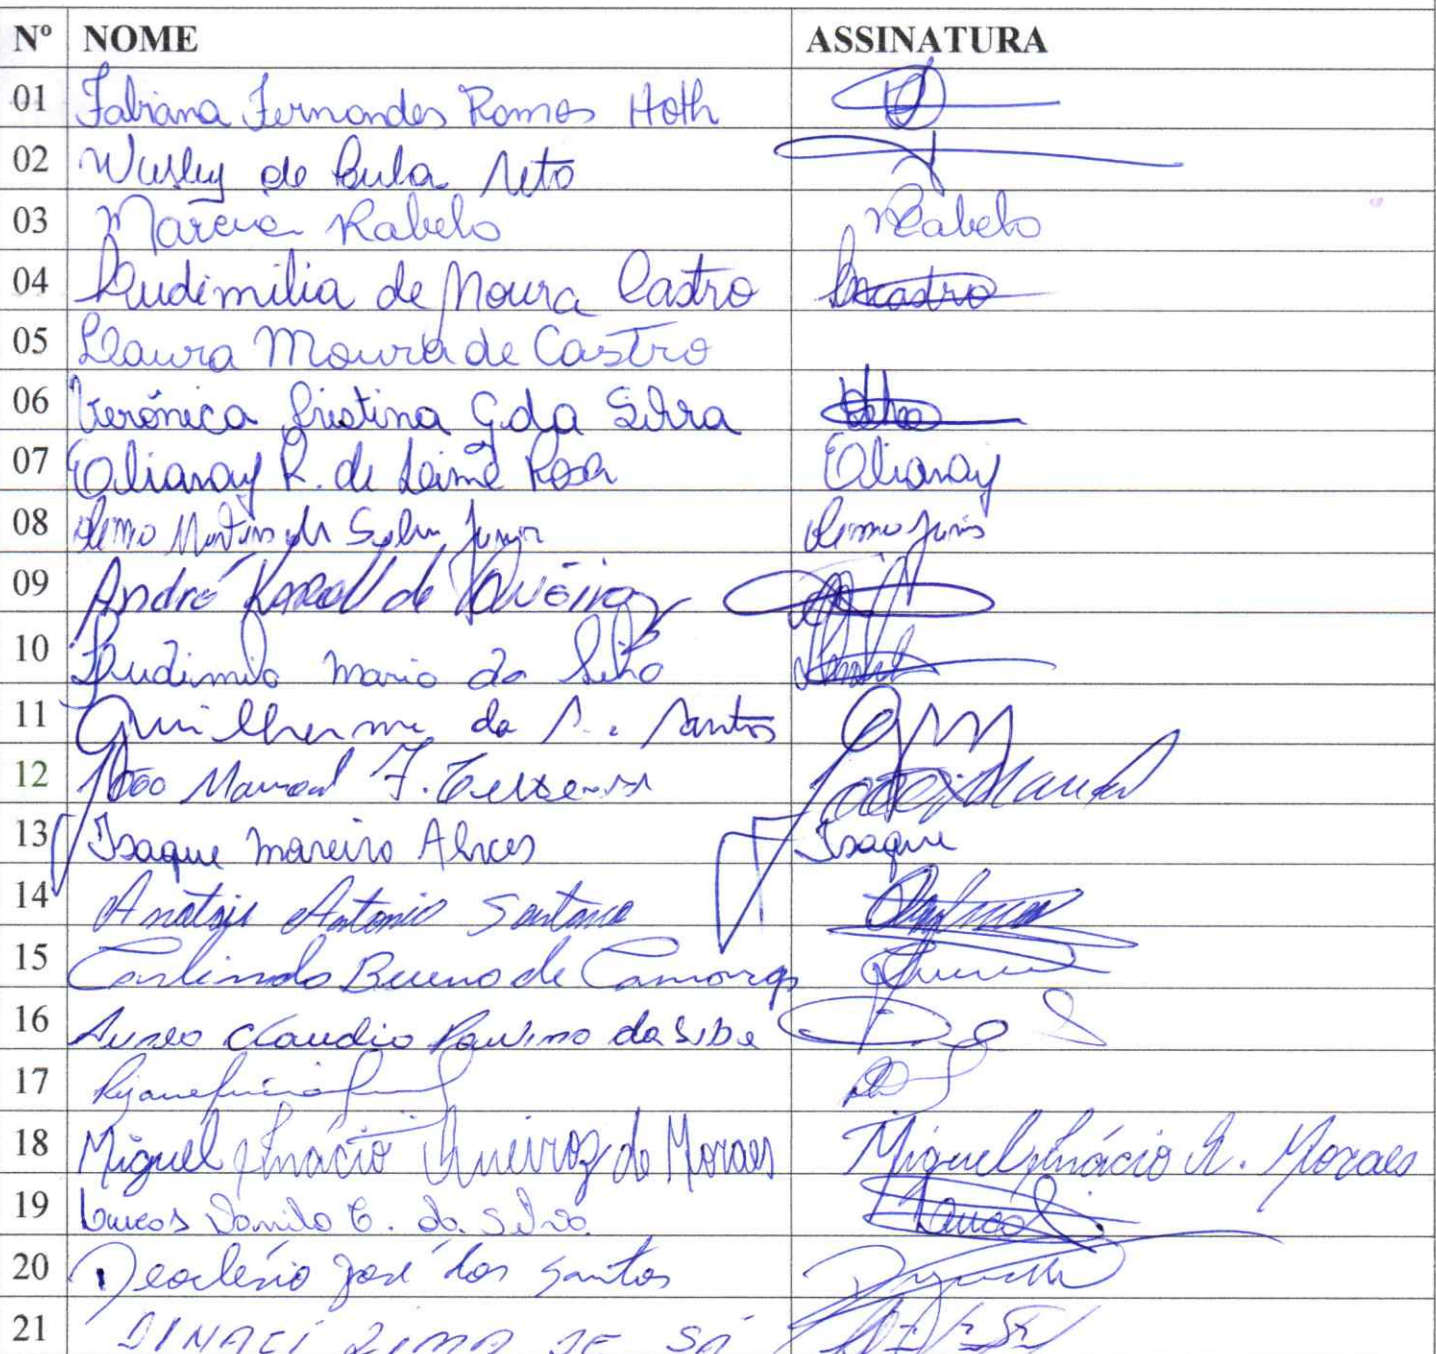 Nº NOME ASSINATURA
01 Fabiana Fernandes Ramos Hoth
02 Wesley de Paula Neto
03 Marcia Rabelo Rabelo
04 Ludimilia de Moura Castro
05 Laura Moura de Castro
06 Verônica Cristina G. da Silva
07 Elianay R. de Rosa Elianay
08 Martins da Silva Junior
09 André de Oliveira
10 Ludimila Maria da Silva
11 Guilherme da Santos
12 João Manoel F. Teixeira João Manoel
13 Isaque Moreira Alves Isaque
14 Antonio Santana
15 Carlindo Bueno de Camargo
16 Aureo Claudio Paulino da Silva
17
18 Miguel Inácio Queiroz de Moraes Miguel Inácio Q. Moraes
19 Lucas Danilo C. da Silva Lucas
20 Deoclésio José dos Santos
21 DINACÍ LIMA DE SÁ